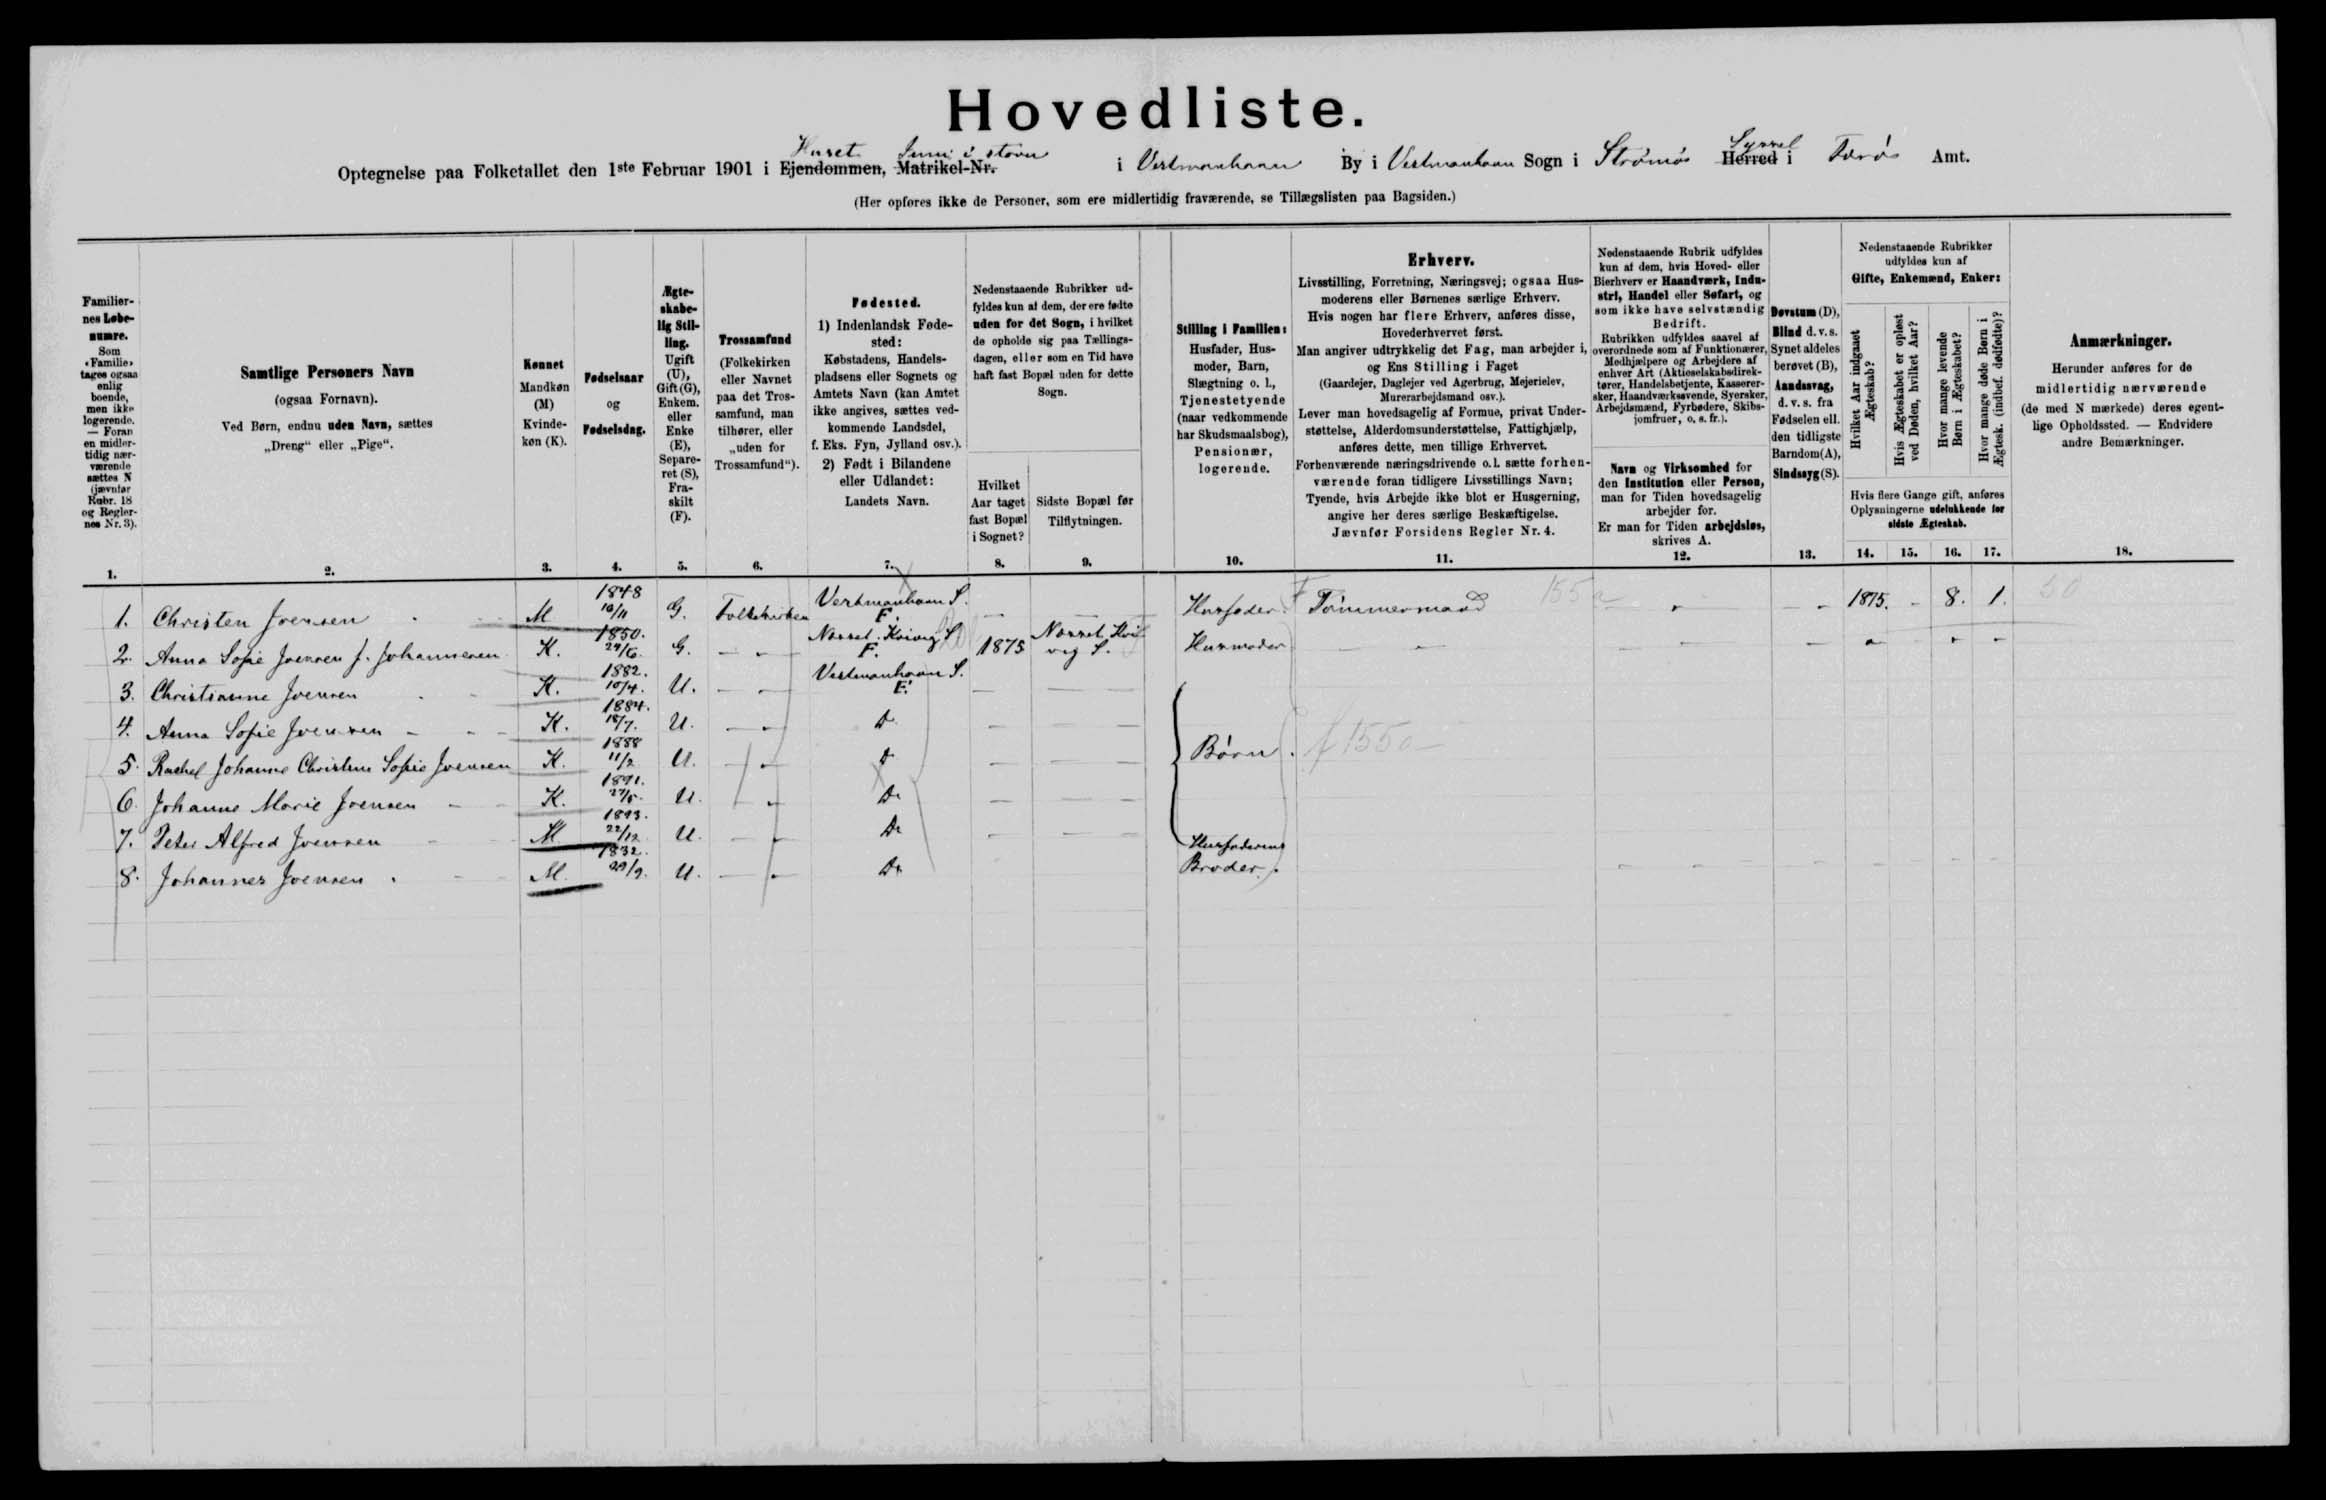 Hovedliste.
Huset i stovu Syssel
Optegnelse paa Folketallet den 1ste Februar 1901 i Ejendommen, Matrikel-Nr. i Vestmanhavn By i Vestmanhavn Sogn i Strømø Herred i Færø Amt.
(Her opføres ikke de Personer, som ere midlertidig fraværende, se Tillægslisten paa Bagsiden.)
Familiernes Løbenumre.
Som «Familie» tages ogsaa enlig boende, men ikke logerende. — Foran en midlertidig nærværende sættes N (jævnfør Rubr. 18 og Reglernes Nr. 3).
Samtlige Personers Navn
(ogsaa Fornavn).
Ved Børn, endnu uden Navn, sættes
„Dreng“ eller „Pige“.
Kønnet
Mandkøn
(M)
Kvindekøn (K).
Fødselsaar
og
Fødselsdag.
Ægteskabelig Stilling.
Ugift (U), Gift (G), Enkem. eller Enke (E), Separeret (S), Fraskilt (F).
Trossamfund
(Folkekirken eller Navnet paa det Trossamfund, man tilhører, eller „uden for Trossamfund“).
Fødested.
1) Indenlandsk Fødested:
Købstadens, Handelspladsens eller Sognets og Amtets Navn (kan Amtet ikke angives, sættes vedkommende Landsdel, f. Eks. Fyn, Jylland osv.).
2) Født i Bilandene eller Udlandet:
Landets Navn.
Nedenstaaende Rubrikker udfyldes kun af dem, der ere fødte uden for det Sogn, i hvilket de opholde sig paa Tællingsdagen, eller som en Tid have haft fast Bopæl uden for dette Sogn.
Hvilket Aar taget fast Bopæl i Sognet?
Sidste Bopæl før Tilflytningen.
Stilling i Familien:
Husfader, Husmoder, Barn, Slægtning o. l., Tjenestetyende (naar vedkommende har Skudsmaalsbog), Pensionær, logerende.
Erhverv.
Livsstilling, Forretning, Næringsvej; ogsaa Husmoderens eller Børnenes særlige Erhverv.
Hvis nogen har flere Erhverv, anføres disse, Hovederhvervet først.
Man angiver udtrykkelig det Fag, man arbejder i, og Ens Stilling i Faget
(Gaardejer, Daglejer ved Agerbrug, Mejerielev, Murerarbejdsmand osv.).
Lever man hovedsagelig af Formue, privat Understøttelse, Alderdomsunderstøttelse, Fattighjælp, anføres dette, men tillige Erhvervet.
Forhenværende næringsdrivende o. l. sætte forhenværende foran tidligere Livsstillings Navn;
Tyende, hvis Arbejde ikke blot er Husgerning, angive her deres særlige Beskæftigelse.
Jævnfør Forsidens Regler Nr. 4.
Nedenstaaende Rubrik udfyldes kun af dem, hvis Hoved- eller Bierhverv er Haandværk, Industri, Handel eller Søfart, og som ikke have selvstændig Bedrift.
Rubrikken udfyldes saavel af overordnede som af Funktionærer, Medhjælpere og Arbejdere af enhver Art (Aktieselskabsdirektører, Handelsbetjente, Kassерersker, Haandværkssvende, Syersker, Arbejdsmænd, Fyrbødere, Skibsjomfruer, o. s. fr.).
Navn og Virksomhed for den Institution eller Person, man for Tiden hovedsagelig arbejder for.
Er man for Tiden arbejdsløs, skrives A.
Døvstum (D), Blind d. v. s. Synet aldeles berøvet (B), Aandssvag, d. v. s. fra Fødselen ell. den tidligste Barndom (A), Sindssyg (S).
Nedenstaaende Rubrikker udfyldes kun af
Gifte, Enkemænd, Enker:
Hvilket Aar indgaaet Ægteskab?
Hvis Ægteskabet er opløst ved Døden, hvilket Aar?
Hvor mange levende Børn i Ægteskabet?
Hvor mange døde Børn i Ægtesk. (indbef. dødfødte)?
Hvis flere Gange gift, anføres Oplysningerne udelukkende for sidste Ægteskab.
Anmærkninger.
Herunder anføres for de midlertidig nærværende (de med N mærkede) deres egentlige Opholdssted. — Endvidere andre Bemærkninger.
1. 2. 3. 4. 5. 6. 7. 8. 9. 10. 11. 12. 13. 14. 15. 16. 17. 18.
1. Christen Joensen M 1848 G. Folkekirken Vestmanhavn S. F. — — Husfader Tømmermand 155a 1875. - 8. 1. 50
2. Anna Sofie Joensen f. Johannesen K. 1850. 29/6 G. — " — F. 1875 Husmoder
3. Christianne Joensen K. 1882. 10/4. U. — " — Vestmanhavn S. F. — —
4. Anna Sofie Joensen K. 1884. 18/7. U. — " — Do — — Børn. f 155a
5. Rachel Johanne Christine Sofie Joensen K. 1888 11/2 U. — " — Do — —
6. Johanne Marie Joensen K. 1891. U. — " — Do — —
7. Peter Alfred Joensen M 1893. 22/12 U. — " — Do — —
8. Johannes Joensen M. 1832. 29/9. U. — " — Do Husfaderens Broder.